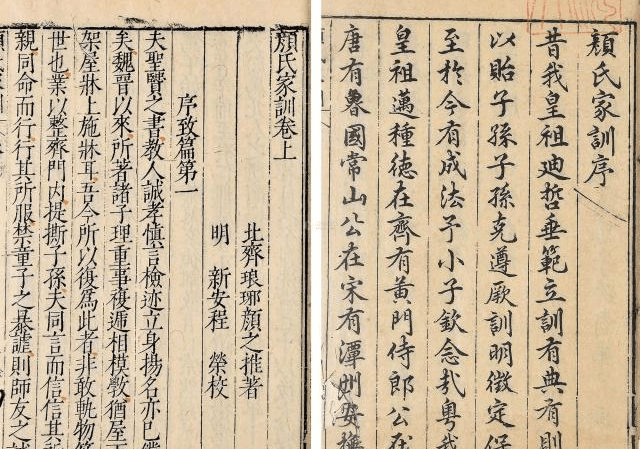 顏氏家訓序
昔我皇祖廸哲垂範立訓有典有則
以貽子孫子孫克遵厥訓明徵定保
至於今有成法予小子欽念哉粵我
皇祖邁種徳在齊有黃門侍郎公在
唐有魯國常山公在宋有潭州安撫
顏氏家訓卷上
北齊琅琊顏之推著
明 新安程 榮校
序致篇第一
夫聖賢之書教人誠孝慎言檢迹立身揚名亦已備
矣魏晉以來所著諸子理重事複遞相模斆猶屋下
架屋牀上施牀耳吾今所以復爲此者非敢軌物範
世也業以整齊門内提撕子孫夫同言而信信其所
親同命而行行其所服禁童子之暴謔則師友之